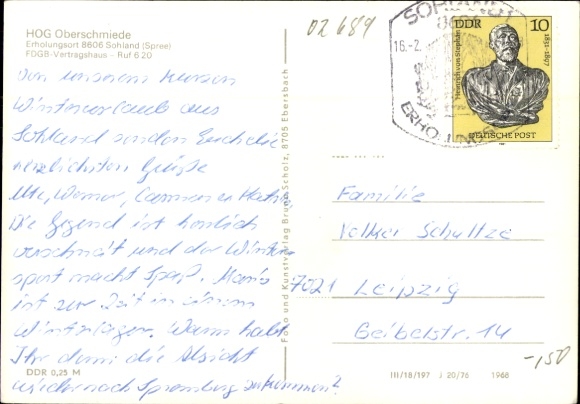 HOG Oberschmiede
Erholungsort 8606 Sohland (Spree)
FDGB-Vertragshaus - Ruf 6 20
Von unserem kurzen
Winterurlaub aus
Sohland senden Euch die
herzlichsten Grüße
Ute, Werner, Carmen u. Kathr.
Die Gegend ist herrlich
verschneit und der Winter-
sport macht Spaß. Mario
ist zur Zeit in einem
Winterlager. Wann habt
Ihr denn die Absicht
wieder nach Spremberg zu kommen?
DDR 0,25 M
Foto und Kunstverlag Brück Scholz, 8705 Ebersbach
02689
SOHLAND
16.-2.
ERHOLUNGS
DDR 10
Heinrich von Stephan
1831-1897
DEUTSCHE POST
Familie
Volker Schultze
7021 Leipzig
Geibelstr. 14
-,50
III/18/197 J 20/76 1968